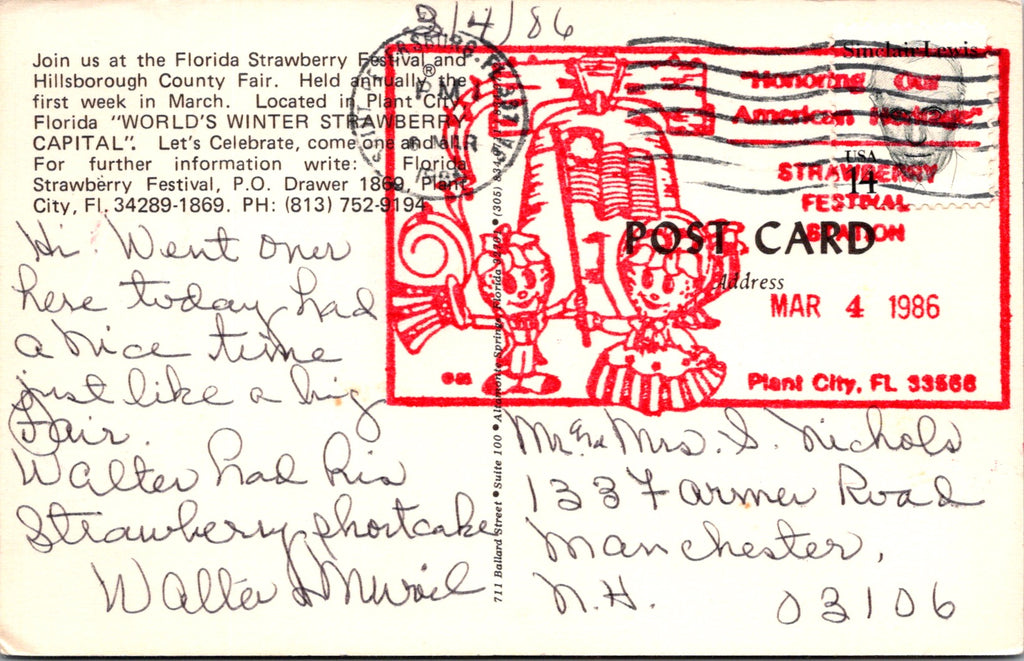 3/4/86
Join us at the Florida Strawberry Festival and
Hillsborough County Fair. Held annually the
first week in March. Located in Plant City,
Florida "WORLD'S WINTER STRAWBERRY
CAPITAL". Let's Celebrate, come one and all.
For further information write: Florida
Strawberry Festival, P.O. Drawer 1869, Plant
City, Fl. 34289-1869. PH: (813) 752-9194
Hi. Went over
here today had
a nice time
just like a big
Fair.
Walter had his
Strawberry shortcake
Walter &
PM
MAR
Sinclair Lewis
USA
14
"Honoring Our
American Heritage"
STRAWBERRY
FESTIVAL
STATION
POST CARD
Address
MAR 4 1986
Plant City, FL 33566
711 Ballard Street • Suite 100 • Altamonte Springs, Florida
Mr. and Mrs. S. Nichols
133 Farmer Road
Manchester,
N.H. 03106